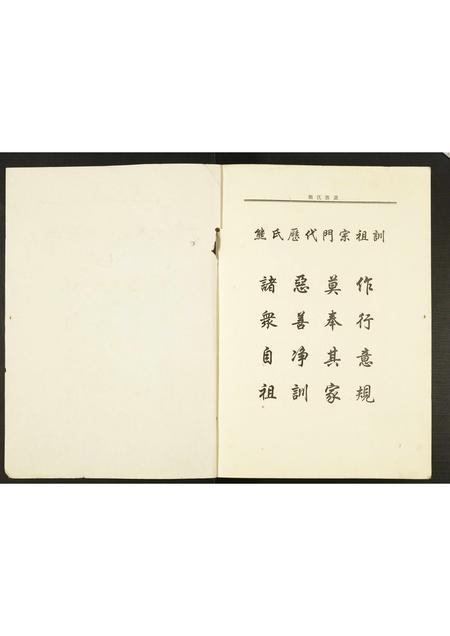 熊氏族譜
熊氏歷代門宗祖訓
諸惡莫作
衆善奉行
自净其意
祖訓家規